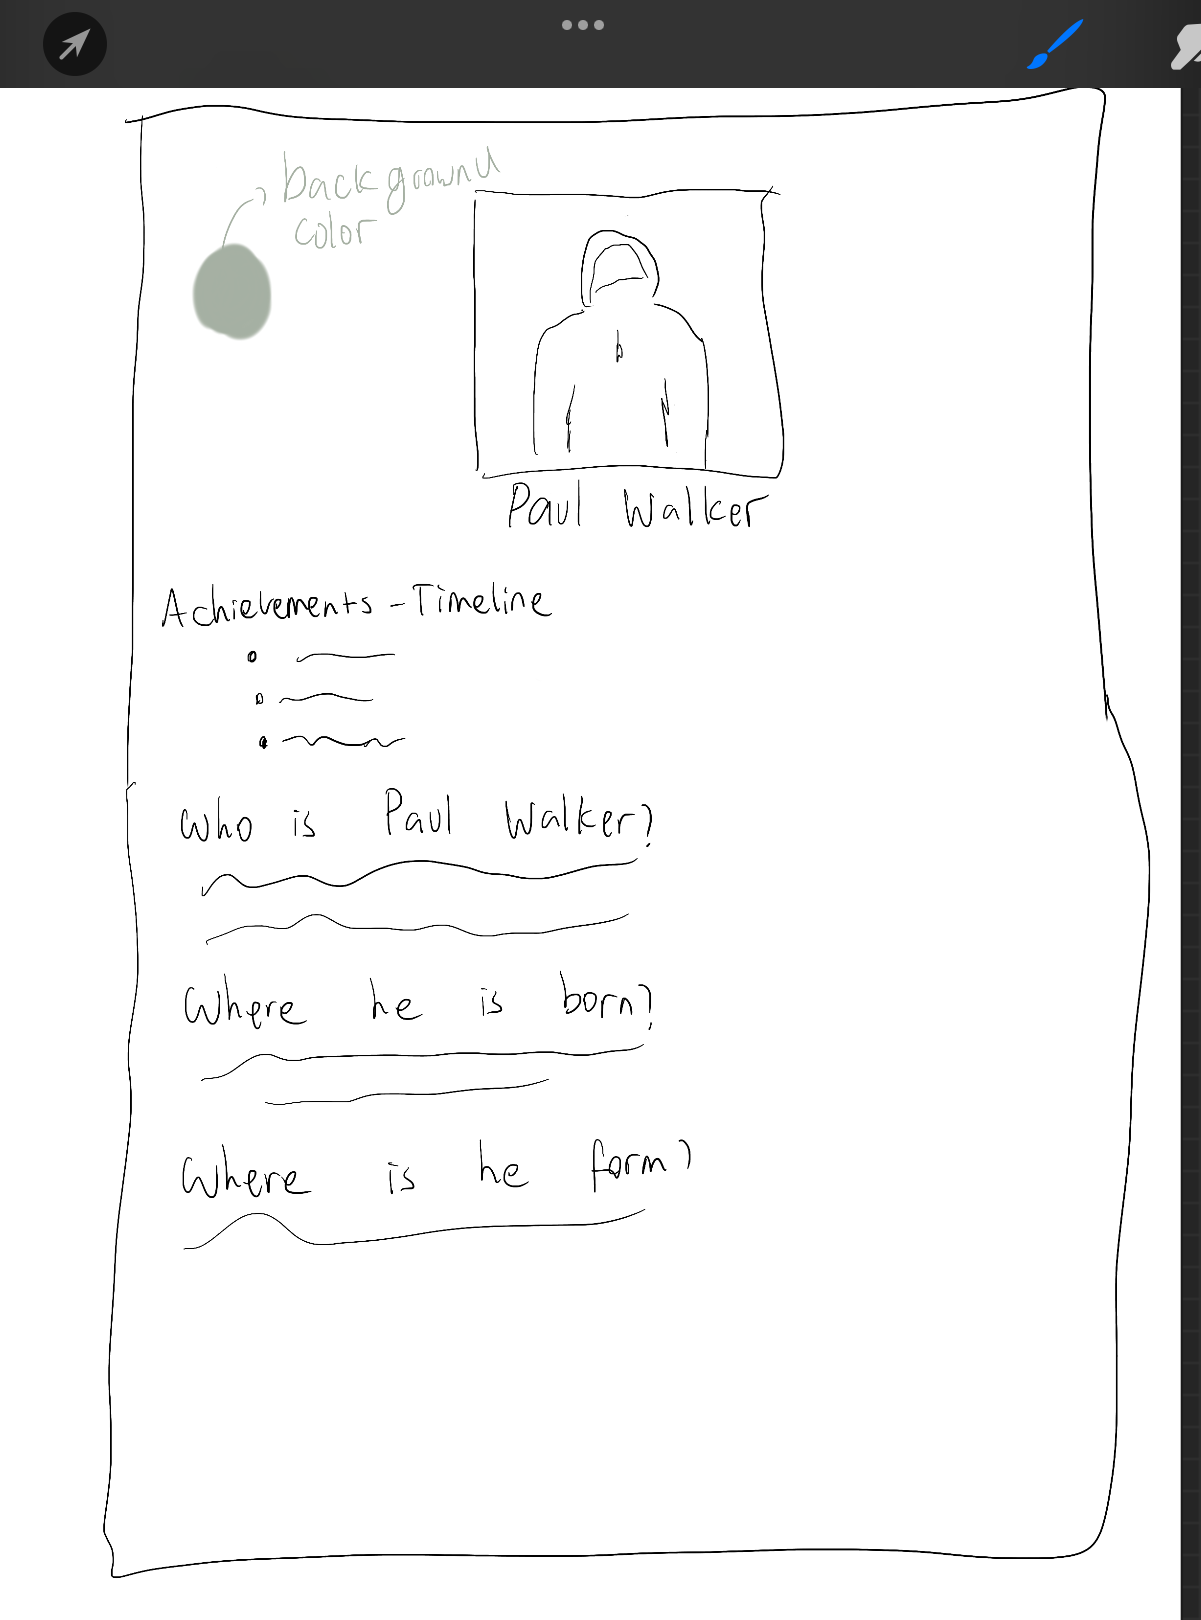 background
color
Paul Walker
Achievements - Timeline
Who is Paul Walker?
Where he is born?
Where is he form?